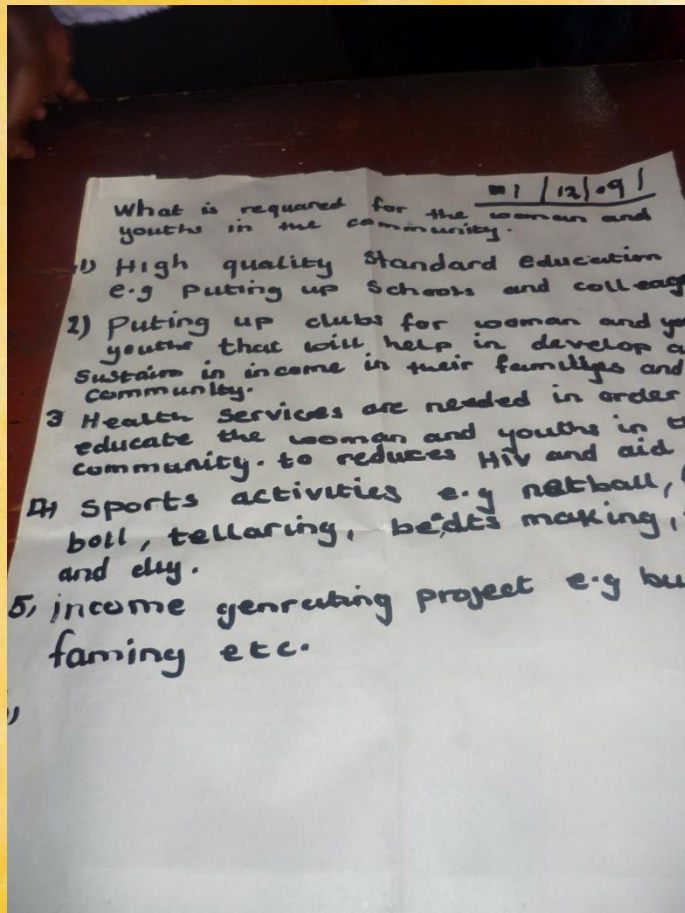 1/12/09
What is requared for the woman and
youths in the community.
1) High quality Standard education
e.g Puting up Schools and colleag
2) Puting up clubs for woman and yo
youths that will help in develop a
Sustaim in income in their familys and
community.
3 Health Services are needed in order
educate the woman and youths in t
community. to reduces HIV and aid
4) Sports activities e.g netball,
boll, tellaring, beadts making,
and
5, income genrating project e.g bu
faming etc.